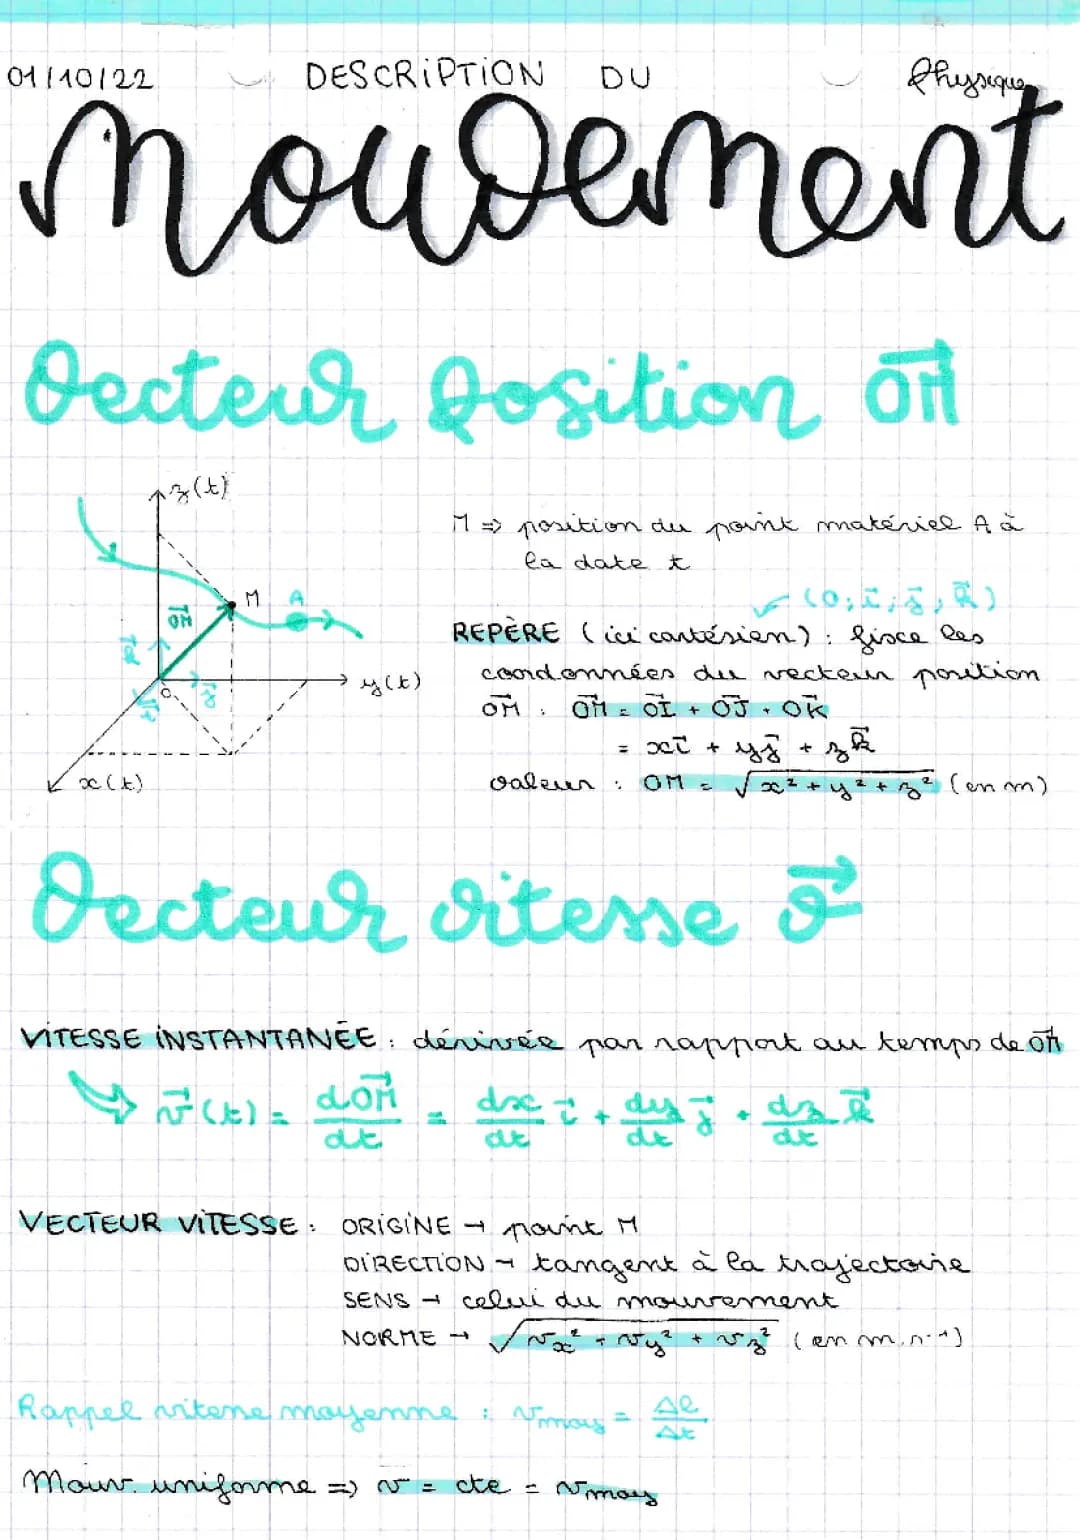 01/10/22 DESCRIPTION DU Physique
Mouvement
Vecteur Position O͞M⃗
z(t)
M ⇒ position du point matériel A à
la date t
(O; i⃗; j⃗; k⃗)
M A
OM⃗
REPÈRE (ici cartésien) : fixe les
k⃗
coordonnées du vecteur position
O j⃗ y(t)
i⃗
OM⃗ : OM⃗ = OI⃗ + OJ⃗ + OK⃗
= xi⃗ + yj⃗ + zk⃗
x(t)
valeur : OM = √(x² + y² + z²) (en m)
Vecteur vitesse v⃗
VITESSE INSTANTANÉE : dérivée par rapport au temps de OM⃗
v⃗(t) = dOM⃗/dt = dx/dt i⃗ + dy/dt j⃗ + dz/dt k⃗
VECTEUR VITESSE : ORIGINE → point M
DIRECTION → tangent à la trajectoire
SENS → celui du mouvement
NORME → √(vx² + vy² + vz²) (en m.s⁻¹)
Rappel vitesse moyenne : vmoy = Δl/Δt
Mouv. uniforme ⇒ v = cte = vmoy